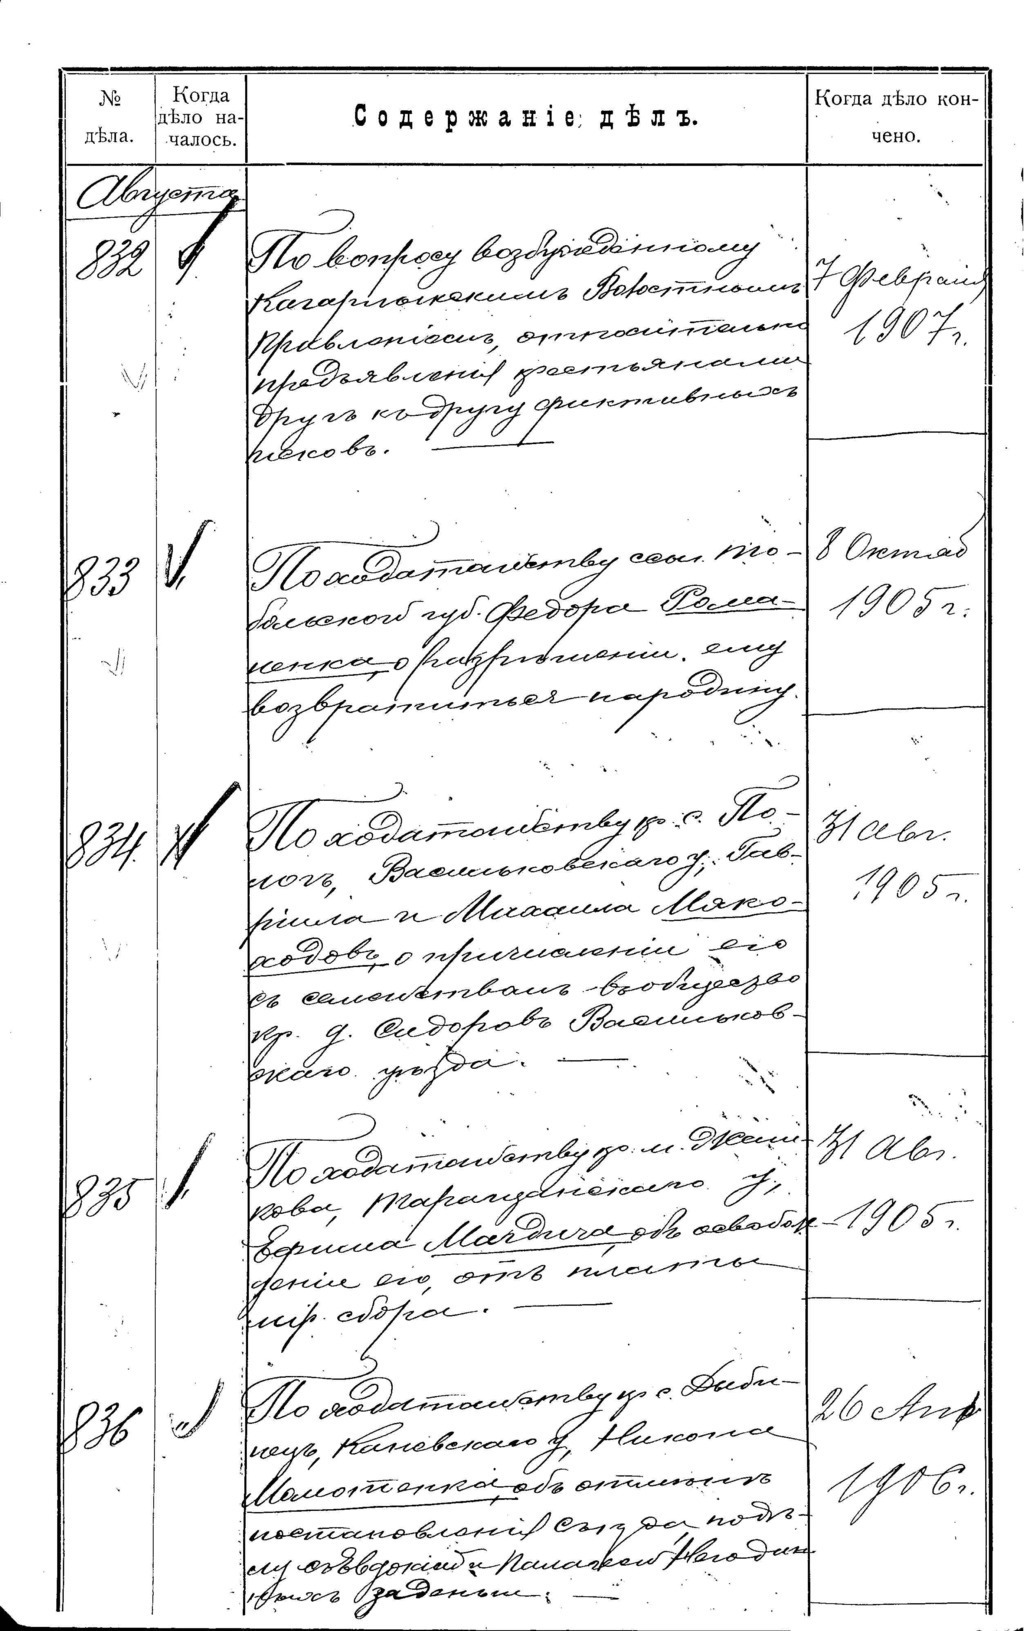 № дѣла.
Когда дѣло на-
чалось.
Содержаніе дѣлъ.
Когда дѣло кон-
чено.
Августа
832
По вопросу возбужденному
Кагарлыкскимъ Волостнымъ
Правленіемъ, относительно
предъявленія крестьянами
другъ къ другу фиктивныхъ
исковъ.
7 Февраля
1907 г.
833
По ходатайству ссыл. То-
больской губ. Федора Рома-
ненка, о разрѣшеніи ему
возвратиться на родину.
8 Октяб
1905 г.
834.
По ходатайству кр. с. По-
логъ, Васильковскаго у., Гав-
ріила и Михаила Мяко-
ходовъ, о причисленіи его
съ семействамъ въ общество
кр. д. Сидоровъ Васильков-
скаго уѣзда.
31 Авг.
1905 г.
835
По ходатайству кр. м.
кова, Таращанскаго у.,
Ефима Мачдича, объ освобож-
деніи его, отъ платы
мір. сбора.
31 Авг.
1905 г.
836
По ходатайству кр. с. Дыби-
нецъ, Каневскаго у., Никона
объ отмѣнѣ
постановленія Съѣзда, по дѣ-
лу
заденьги.
26 Апр
1906 г.